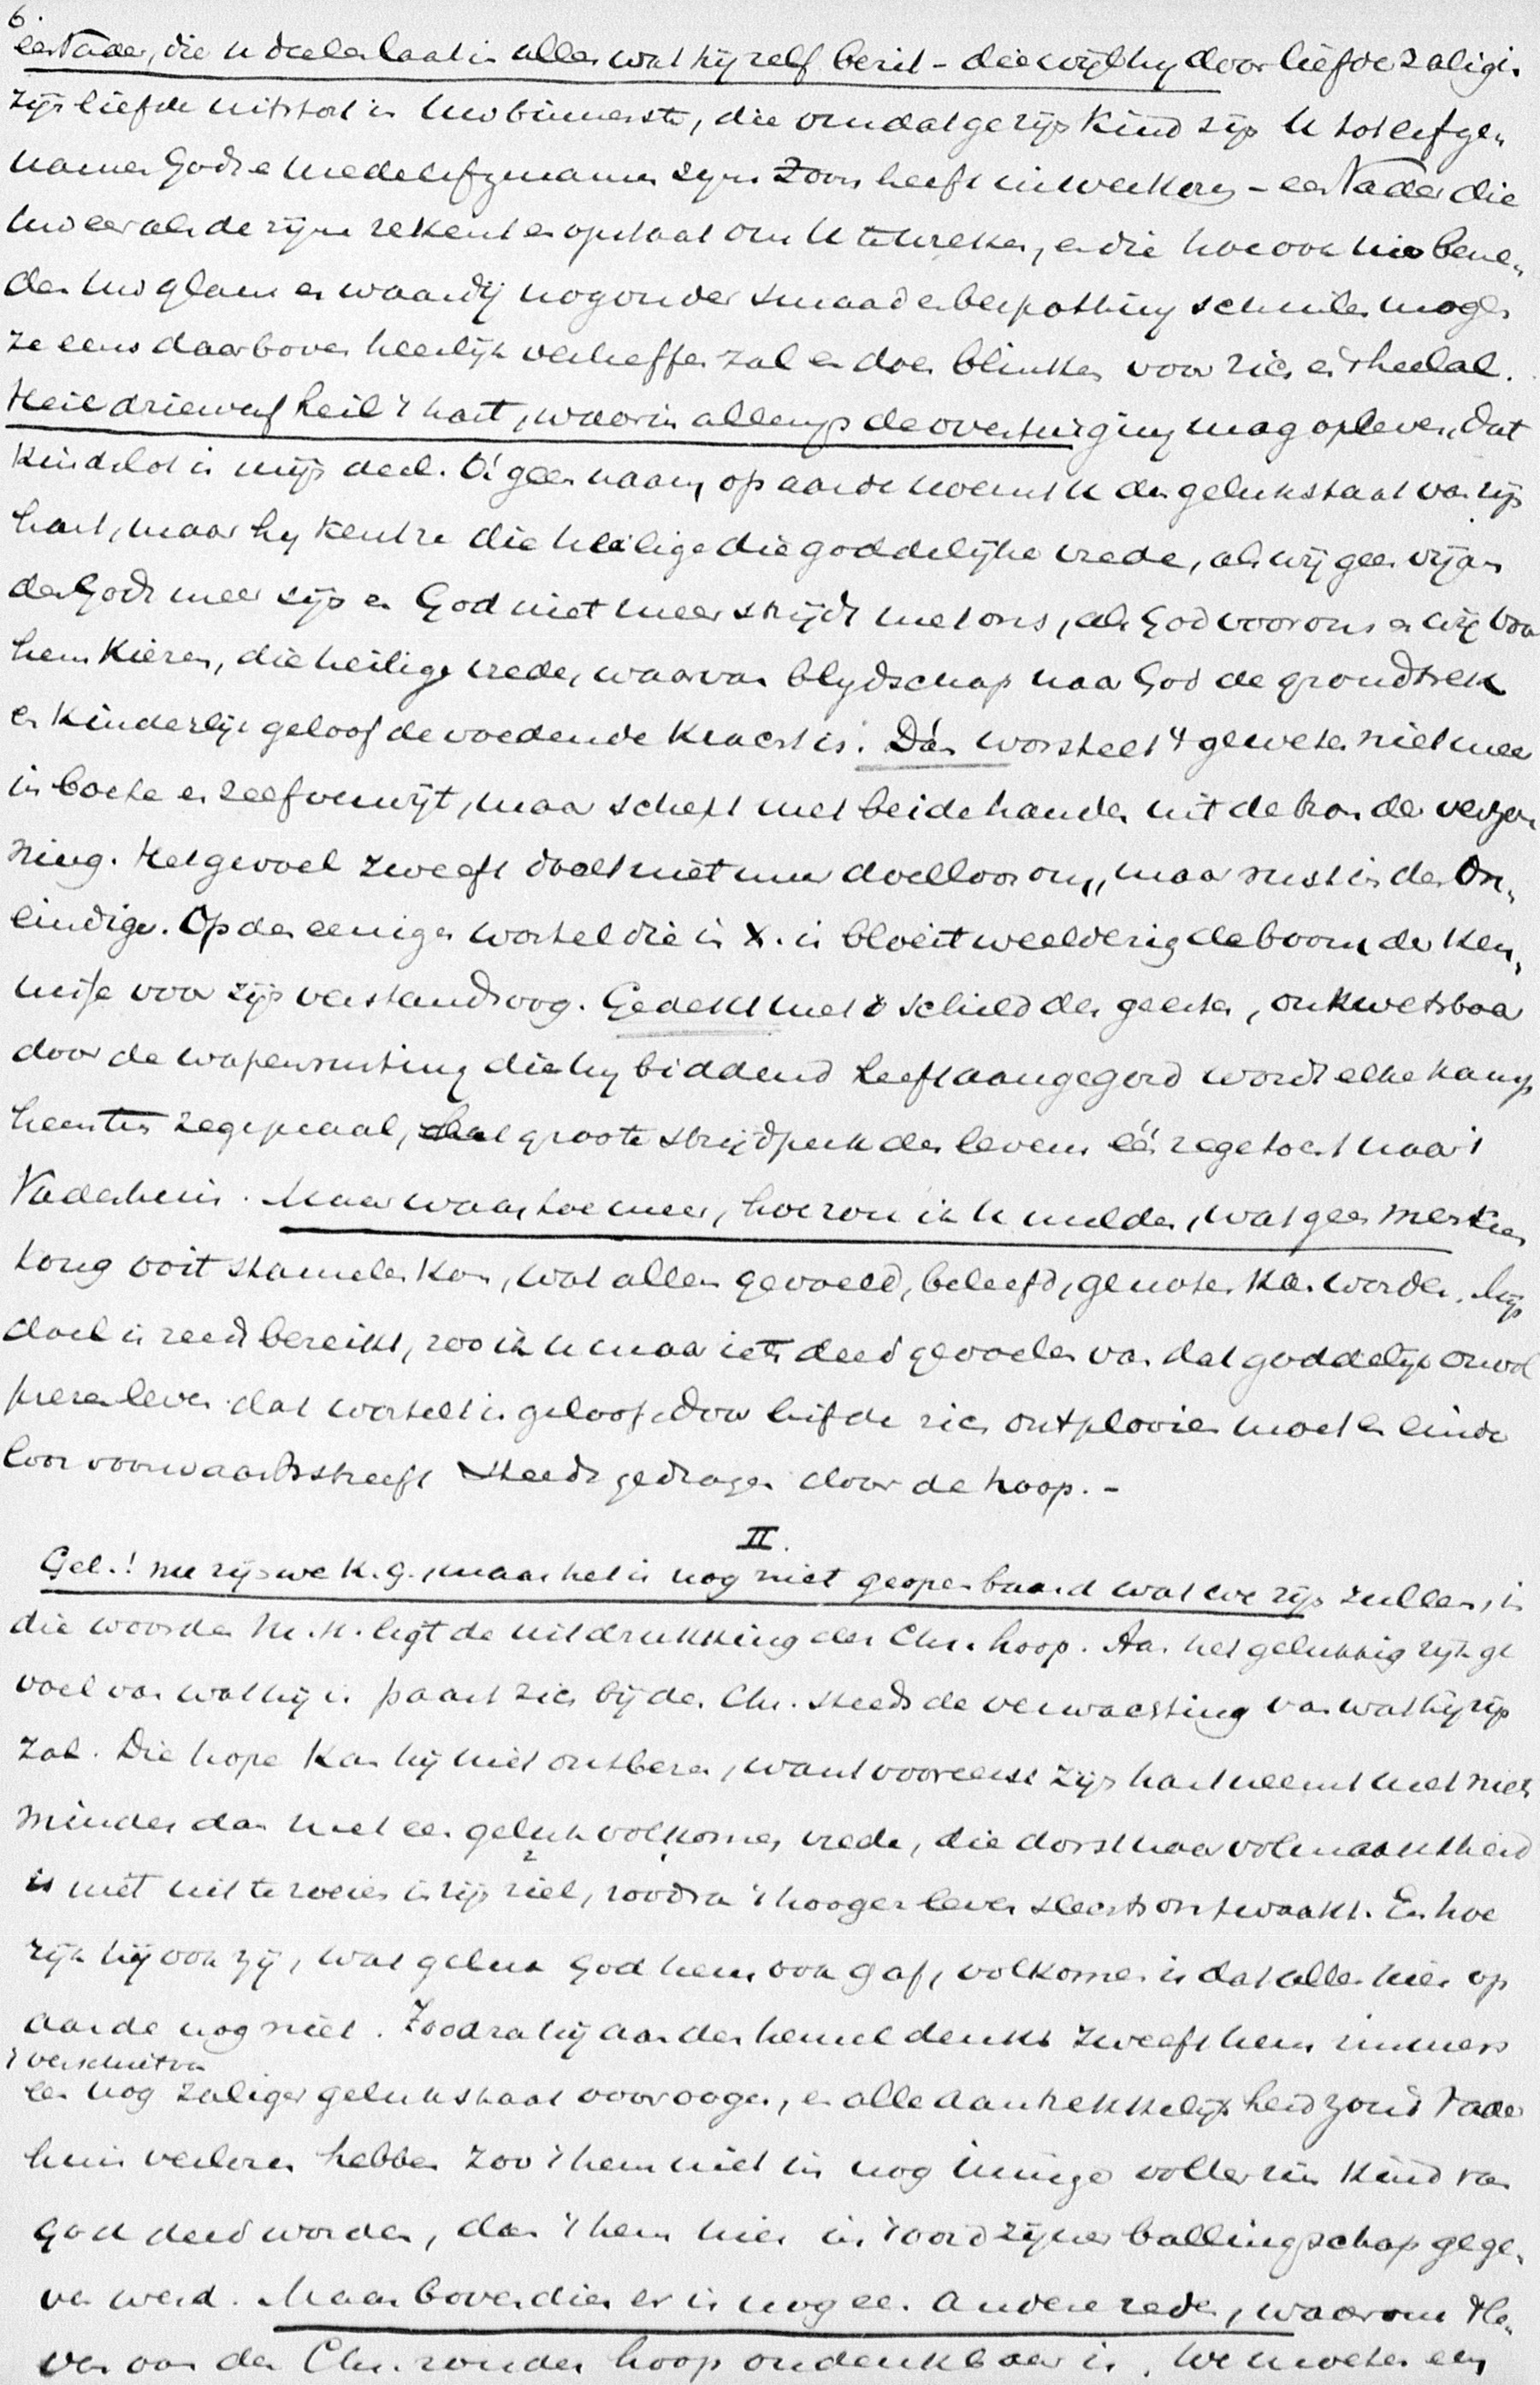 6.
een Vader, die u deelen laat in alles wat hij zelf bezit – die wijl hy door liefde zalig is
zijn liefde uitstort in Uw binnenste, die omdat ge zijn kind zijt U tot erfge„
namen Gods en medeerfgenamen zyns Zoons heeft – een Vader die
Uw eer als de zijne rekent en opstaat om U te wreken, en die hoe ook hier bene„
den Uw glans en waardij nog onder smaad en bespotting schuilen mogen
ze eens daarboven heerlijk verheffen zal en doen blinken voor zich en 't heelal.
Heil driewerf heil 't hart, waarin allengs de overtuiging mag opleven, dat
kindslot is mijn deel. O! geen naam op aarde noemt U den gelukstaat van zijn
hart, maar hy kent ze die heilige die goddelijke vrede, als wij geen vijan
den Gods meer zijn en God niet meer strijdt met ons, als God voor ons en wij voor
hem kiezen, die heilige vrede, waarvan blydschap naar God de grondtrek
en kinderlijk geloof de voedende kracht is. Dán worstelt 't geweten niet meer
in boete en zelfverwijt, maar schept met beide handen uit de bron der verzoe
ning. Het gevoel zweeft doelt niet meer doelloos om, maar rust in den On„
eindige. Op den eenigen wortel die in X. is bloeit weelderig de boom der ken„
nisse voor zijn verstandsoog. Gedekt met 't schild des geestes, onkwetsbaar
door de wapenrusting die hy biddend heeft aangegord wordt elke kamp
hem ten zegepraal, het groote strijdperk des levens één zegetocht naar 't
Vaderhuis. Maar waartoe meer, hoe zou ik U melden, wat geen menschen
tong ooit stamelen kon, wat alleen gevoeld, beleefd, genoten kan worden. Mijn
doel is reeds bereikt, zoo ik U maar iets deed gevoelen van dat goddelijk onvol
prezen leven dat wortelt in geloof door liefde zich ontplooien moet en einde
loos voorwaarts streeft steeds gedragen door de hoop. –
II.
Gel.! nu zijn we K. G., maar het is nog niet geopenbaard wat we zijn zullen, in
die woorden M. H. ligt de uitdrukking der Chr. hoop. Aan het gelukkig rijk ge
voel van wat hij is paart zich bij den Chr. steeds de verwachting van wat hij zijn
zal. Die hope kan hij niet ontberen, want vooreerst zijn hart neemt met niets
minder dan met een geluk volkomen vrede, die dorst naar volmaaktheid
is niet uit te roeien in zijn ziel, zoodra 't hooger leven slechts ontwaakt. En hoe
rijk hij ook zij, wat geluk God hem ook gaf, volkomen is dat alles hier op
aarde nog niet. Zoodra hij aan den hemel denkt zweeft hem immers
't verschiet van
een nog zaliger gelukstaat voor oogen, en alle aantrekkelijkheid zou 't Vader
huis verloren hebben zoo 't hem niet in nog inniger voller zin kind van
God deed worden, dan 't hem hier in 't oord zijner ballingschap gege„
ven werd. Maar bovendien er is nog een andere reden, waarom 't le„
ven van den Chr. zonder hoop ondenkbaar is. We moeten een